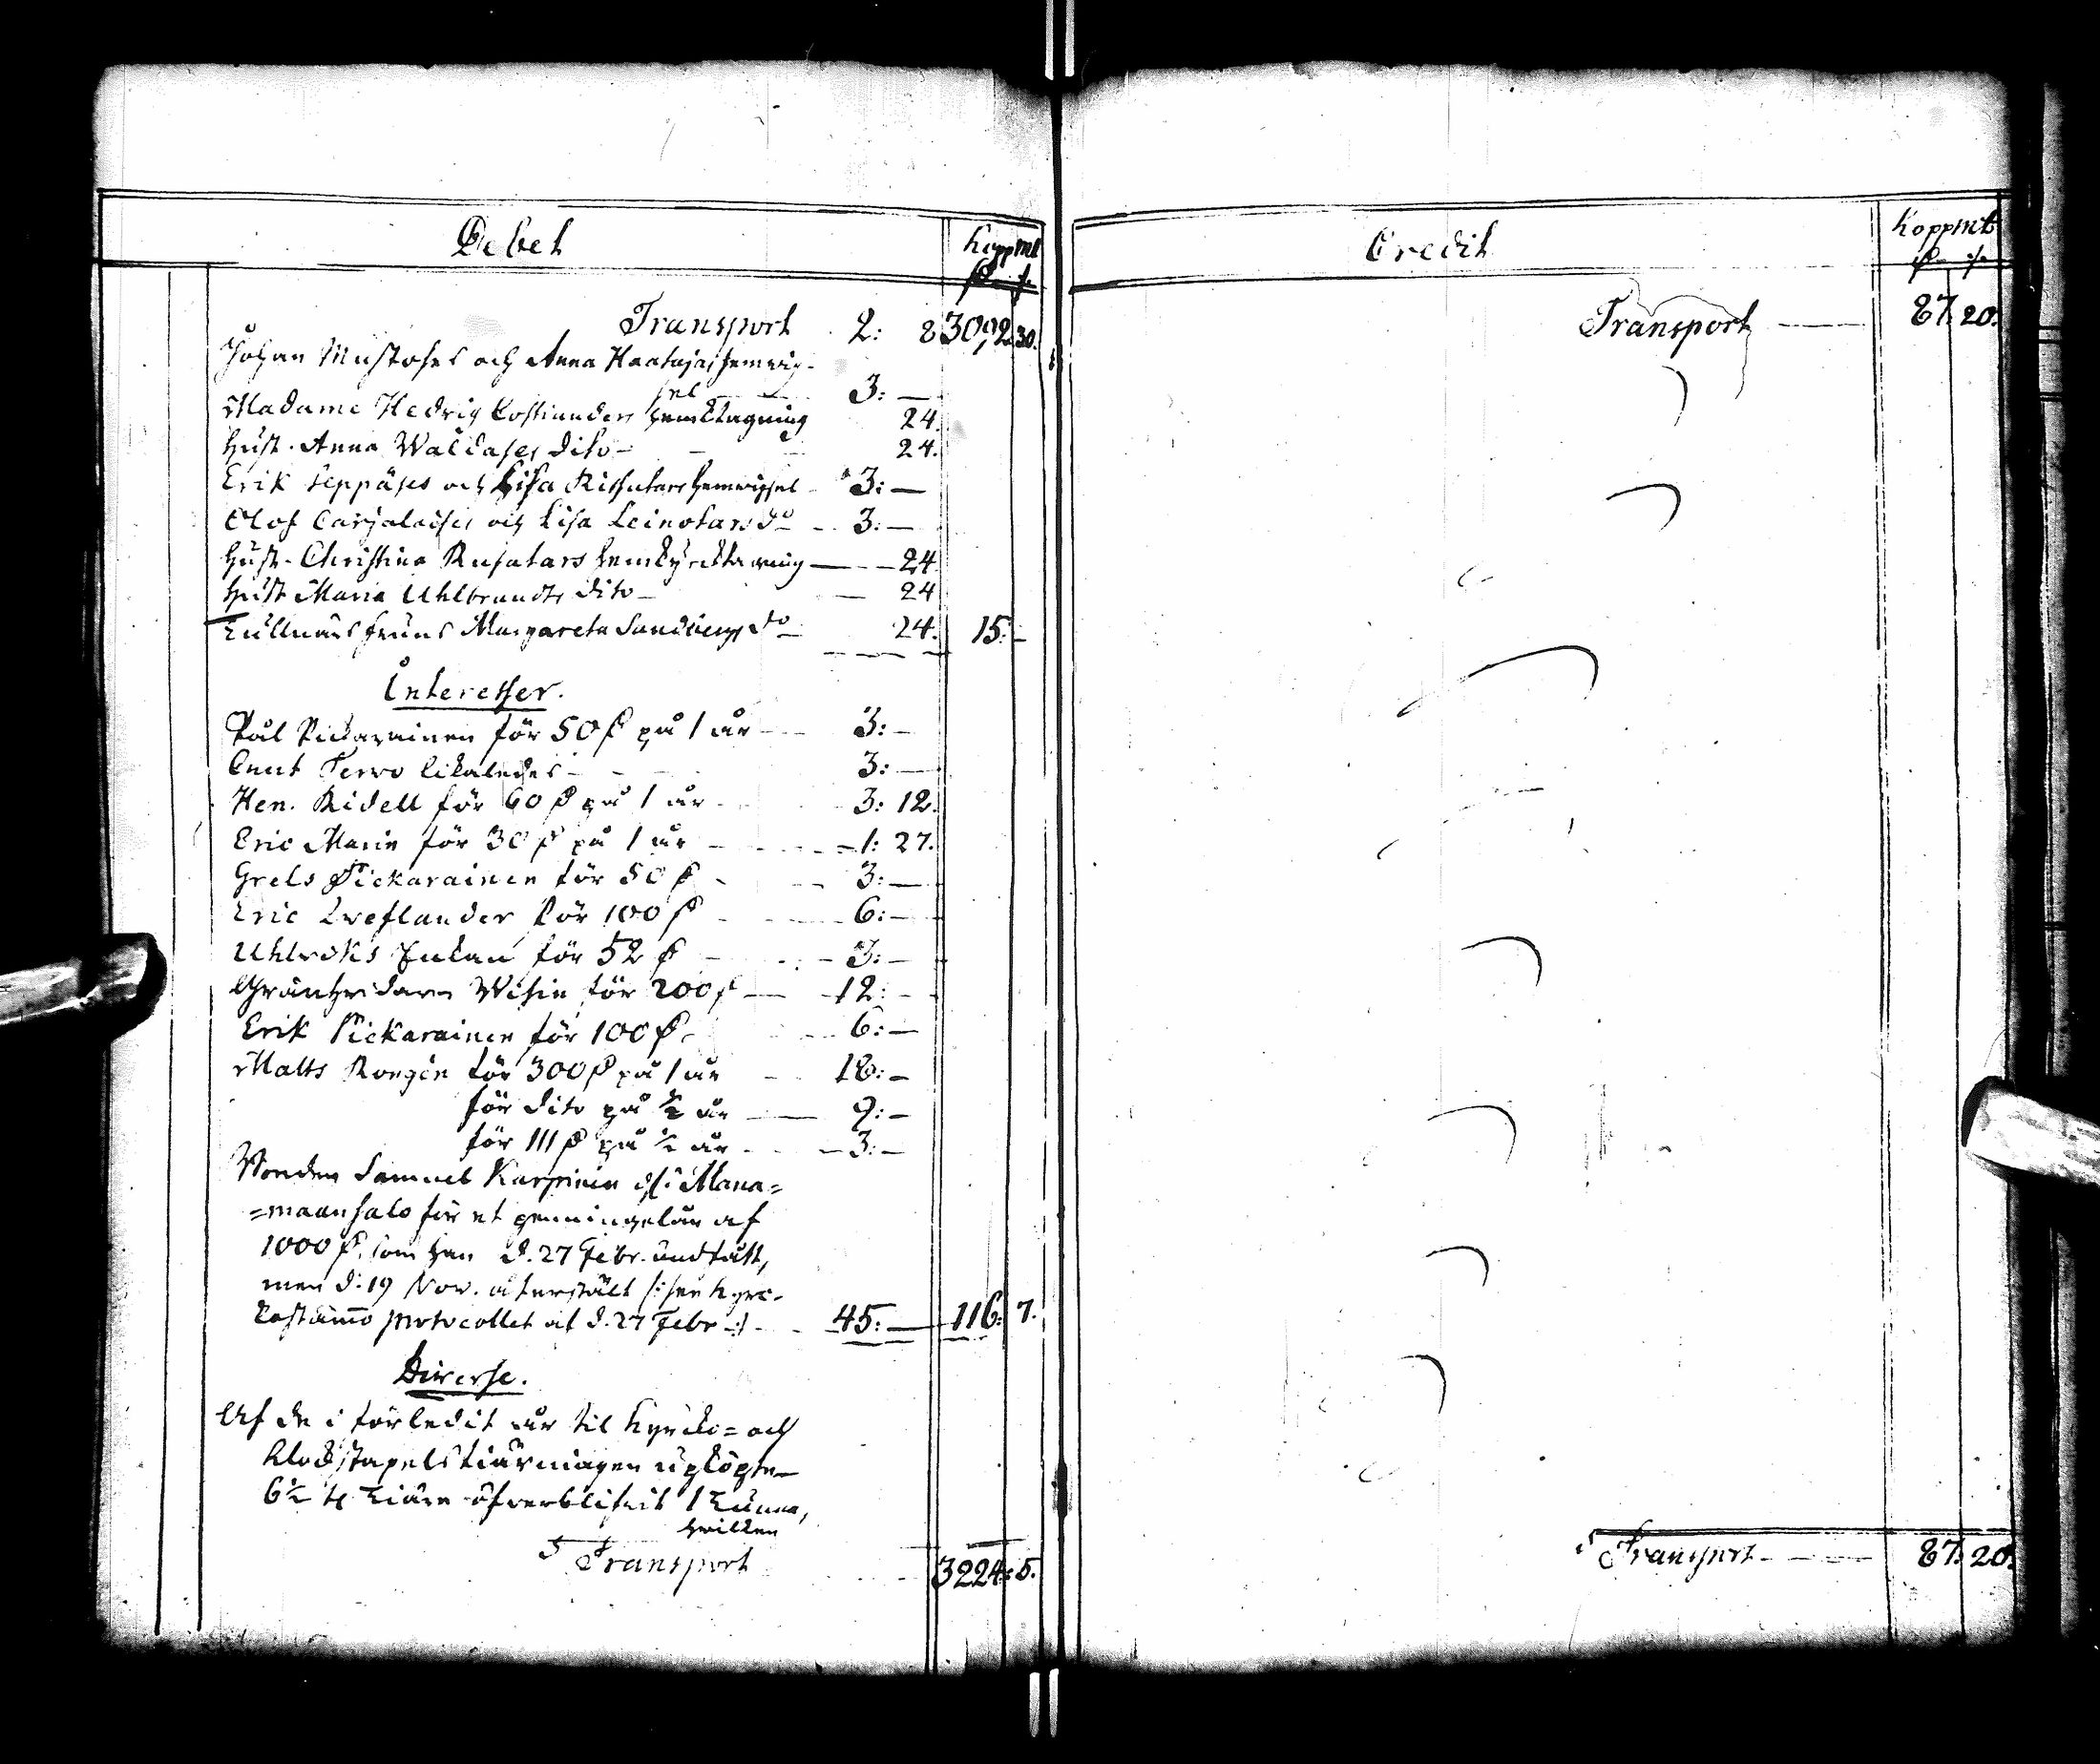 Debet Koppmt
Transport 2: 8 3092. 30.
Johan Mustoses och Anna Haatajas hemvig-
sel 3: —
Madame Hedvig Costianders hemktagning 24.
Hust. Anna Waldases dito — 24.
Erik Seppäses och Lisa Ritsutars hemvigsel 3: —
Olof Carjalaises och Lisa Leinotars do 3: —
Hust. Christina Rusutars hemkyrcktagning — 24
Hust Maria Uhlbrandts dito — 24
Tullnärs fruns Margareta Sandbergs do 24. 15. —
Interesser.
Pål Pickarainen för 50 på 1 år 3: —
Cnut Tervo likaledes 3: —
Hen. Ridell för 60 på 1 år 3: 12.
Eric Marin för 30 på 1 år 1: 27.
Grels Pickarainen för 50 3: —
Eric Lreflander för 100 6: —
Enkan för 52 3: —
Wisin för 200 12: —
Erik Pickarainen för 100 6: —
Matts Rongén för 300 på 1 år 18: —
för dito på ½ år 9: —
för 111 på ½ år 3: —
Bonden Samuel Karpinen ifr. Mana=
=maansalo för et penningelån af
1000 som han d. 27 Febr. undfått,
men d: 19 Nov. återstält /: se Kyrc-
kostämo protocollet af d. 27 Febr :/ 45: — 116: 7.
Diverse.
Af de i förledit år til Kyrcko= och
Klockstapels tiärningen upköpte
6½ tiära öfverblifvit 1 Tunna,
hvilken
Transport 3224: 5.
Credit Koppmt
Transport 87. 20.
Transport 87. 20.